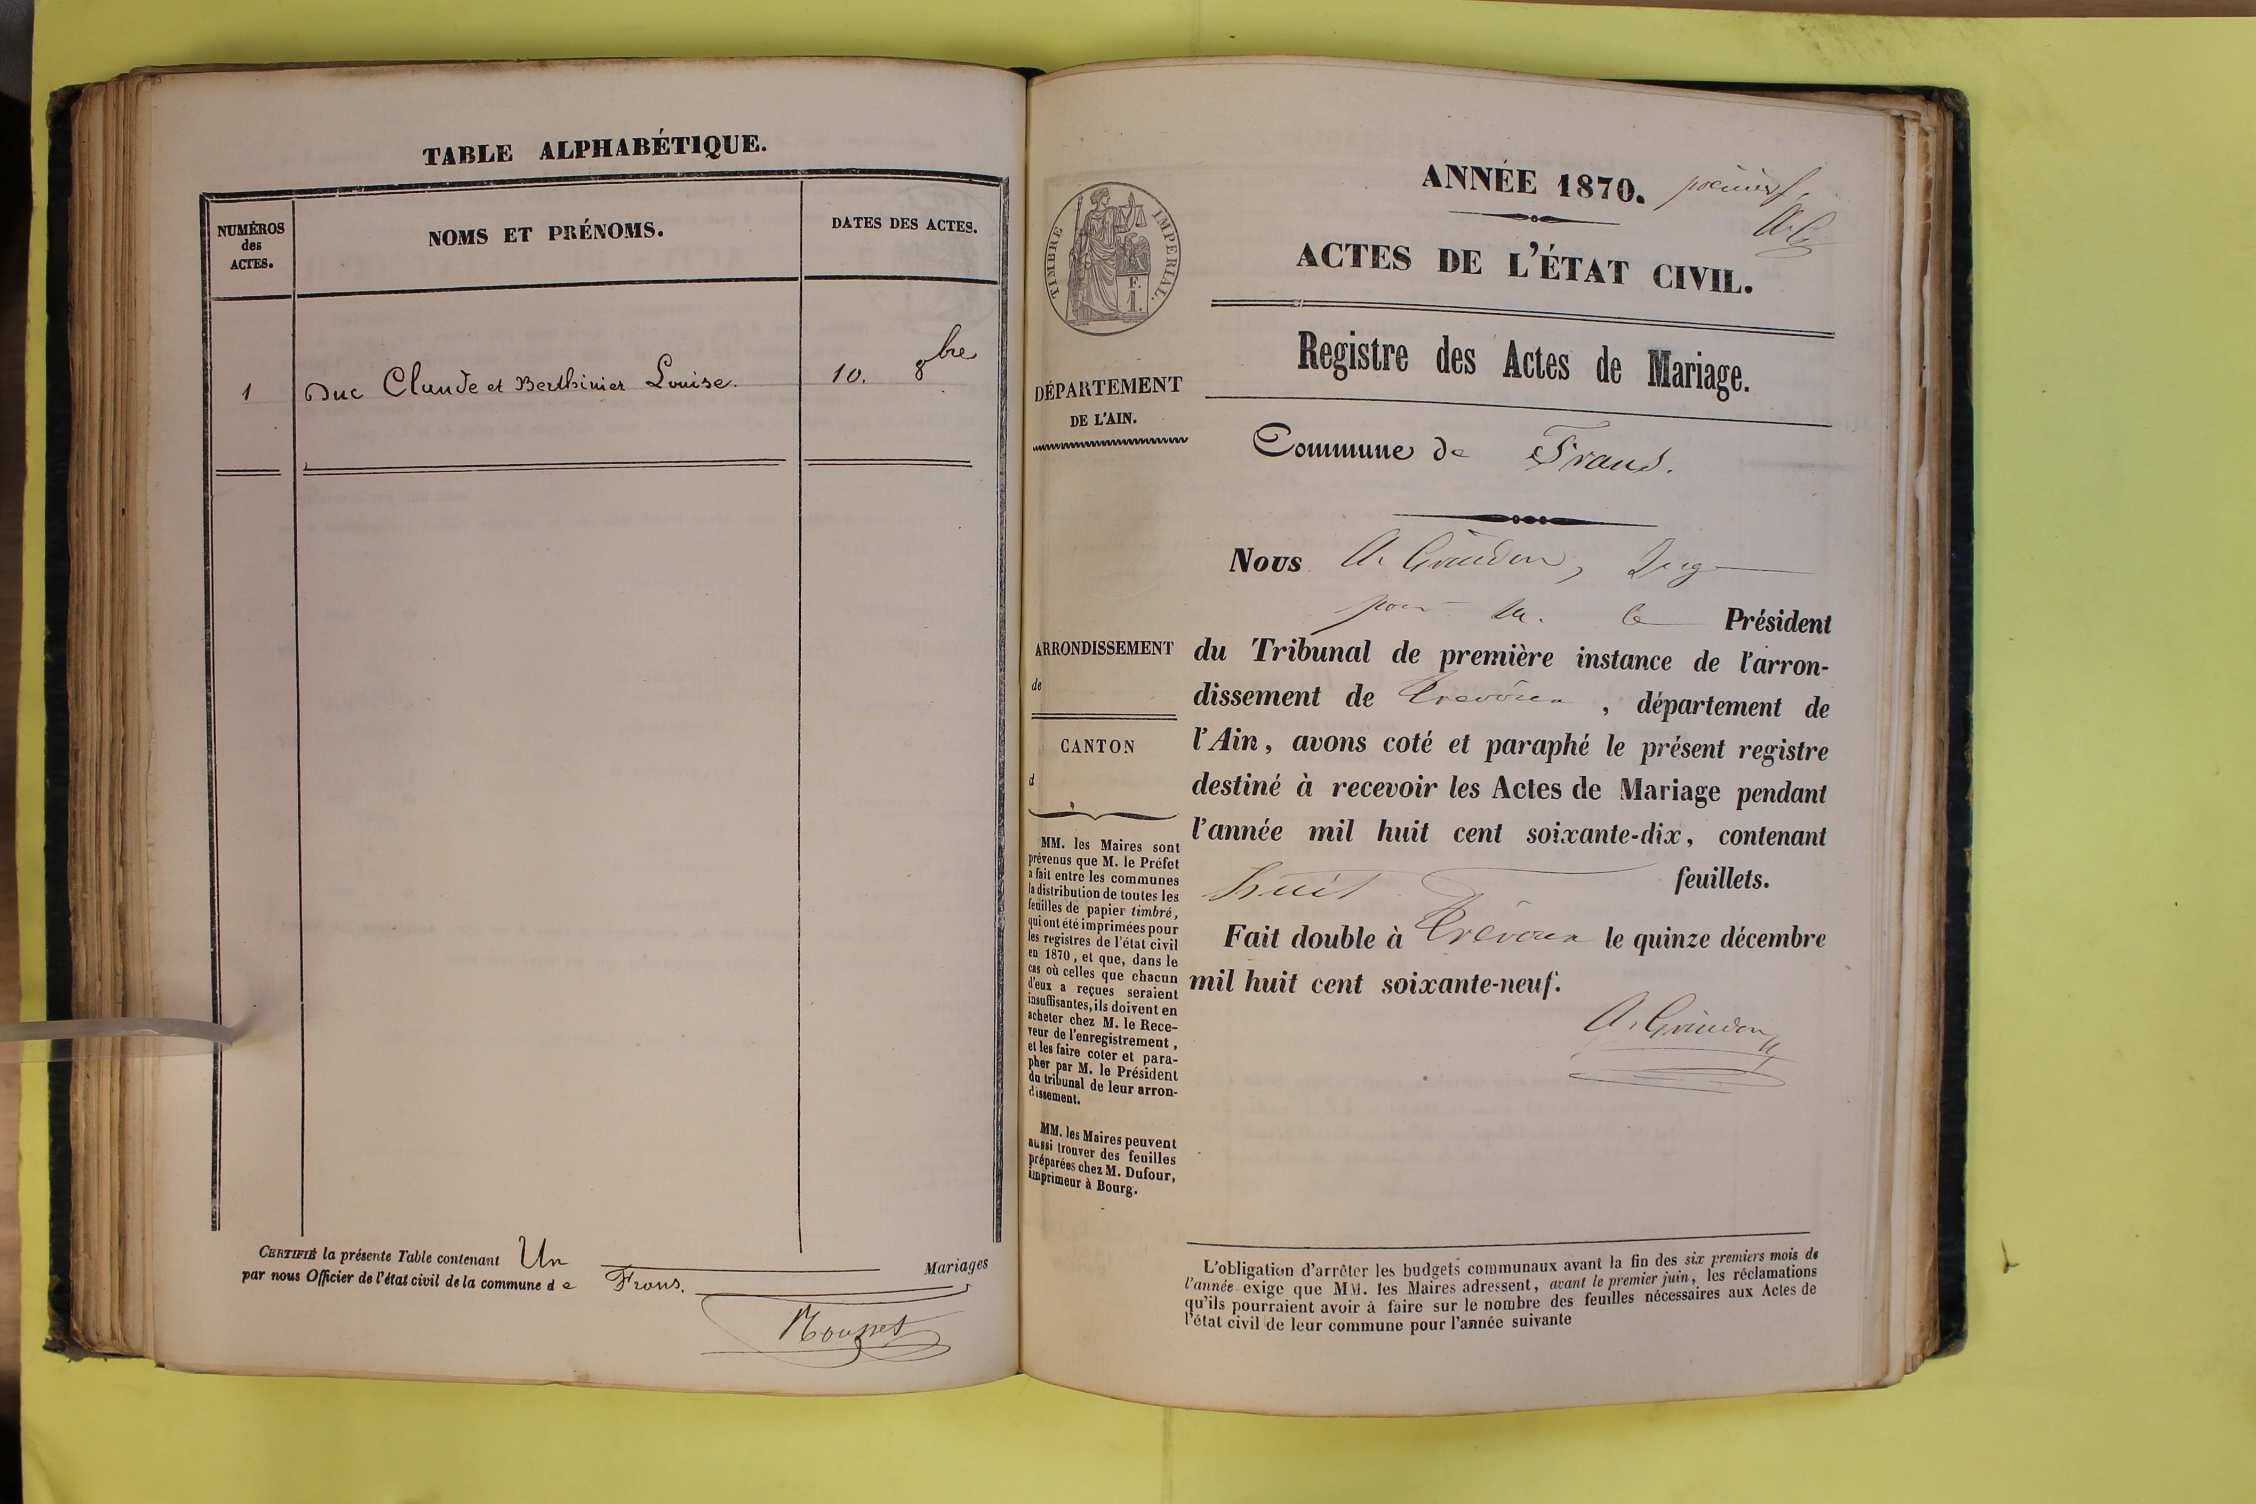 TABLE ALPHABÉTIQUE.
NUMÉROS
des
ACTES.
NOMS ET PRÉNOMS.
DATES DES ACTES.
1 Duc Claude et Berthinier Louise. 10. 8bre
CERTIFIÉ la présente Table contenant Un Mariages
par nous Officier de l'état civil de la commune de Frans.
ANNÉE 1870.
ACTES DE L'ÉTAT CIVIL.
TIMBRE IMPERIAL.
F.
1.
Registre des Actes de Mariage.
DÉPARTEMENT
DE L'AIN.
Commune de Frans.
ARRONDISSEMENT
de
CANTON
d
MM. les Maires sont
prévenus que M. le Préfet
a fait entre les communes
la distribution de toutes les
feuilles de papier timbré,
qui ont été imprimées pour
les registres de l'état civil
en 1870, et que, dans le
cas où celles que chacun
d'eux a reçues seraient
insuffisantes, ils doivent en
acheter chez M. le Rece-
veur de l'enregistrement,
et les faire coter et para-
pher par M. le Président
du tribunal de leur arron-
dissement.
MM. les Maires peuvent
aussi trouver des feuilles
préparées chez M. Dufour,
imprimeur à Bourg.
Nous A. Grindon, Juge
pour M. le Président
du Tribunal de première instance de l'arron-
dissement de Trévoux, département de
l'Ain, avons coté et paraphé le présent registre
destiné à recevoir les Actes de Mariage pendant
l'année mil huit cent soixante-dix, contenant
huit feuillets.
Fait double à Trévoux le quinze décembre
mil huit cent soixante-neuf.
A. Grindon
L'obligation d'arrêter les budgets communaux avant la fin des six premiers mois de
l'année exige que MM. les Maires adressent, avant le premier juin, les réclamations
qu'ils pourraient avoir à faire sur le nombre des feuilles nécessaires aux Actes de
l'état civil de leur commune pour l'année suivante